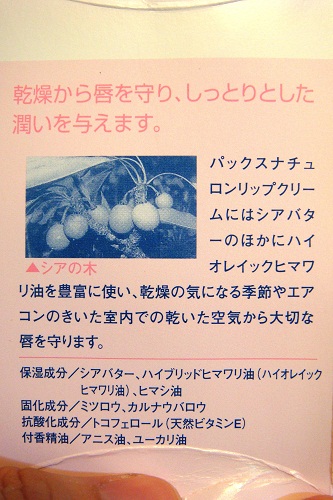 乾燥から唇を守り、しっとりとした
潤いを与えます。
パックスナチュ
ロンリップクリー
ムにはシアバタ
ーのほかにハイ
オレイックヒマワ
▲シアの木
リ油を豊富に使い、乾燥の気になる季節やエア
コンのきいた室内での乾いた空気から大切な
唇を守ります。
保湿成分／シアバター、ハイブリッドヒマワリ油（ハイオレイック
ヒマワリ油）、ヒマシ油
固化成分／ミツロウ、カルナウバロウ
抗酸化成分／トコフェロール（天然ビタミンE）
付香精油／アニス油、ユーカリ油